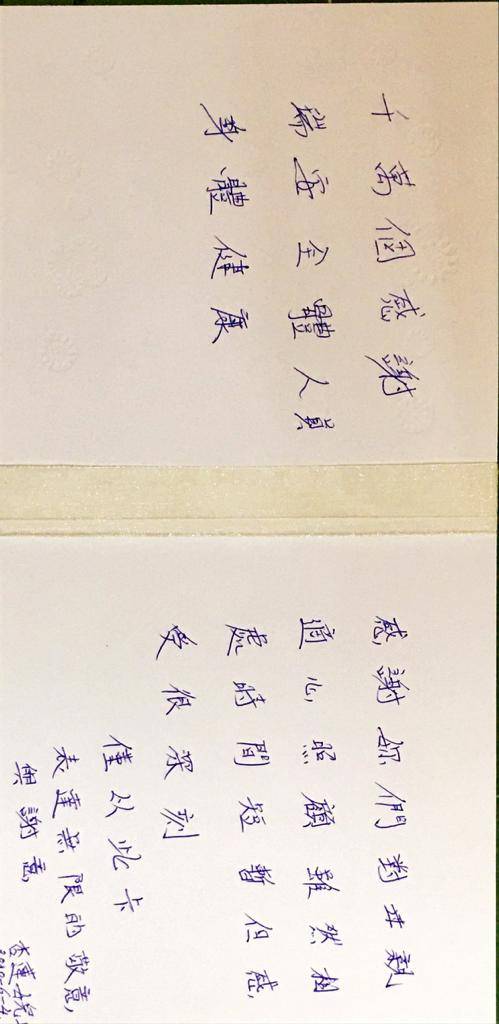 千萬個感謝
瑞安全體人員
身體健康
感謝妳們對母親
適心照顧雖然相
處時間短暫但感
受很深刻
僅以此卡
表達無限的敬意
與謝意